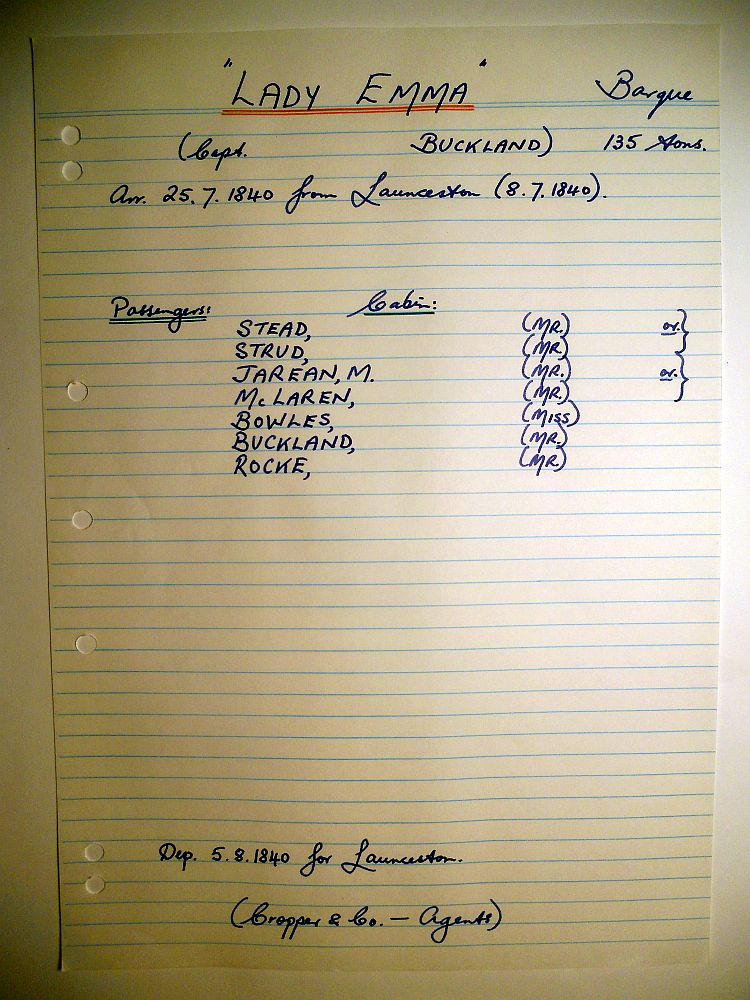 "LADY EMMA" Barque
(Capt. BUCKLAND) 135 tons.
Arr. 25.7.1840 from Launceston (8.7.1840).
Passengers: Cabin:
STEAD, (MR.) or.}
STRUD, (MR.)
JAREAN, M. (MR.) or.}
McLAREN, (MR.)
BOWLES, (MISS)
BUCKLAND, (MR.)
ROCKE, (MR.)
Dep. 5.8.1840 for Launceston.
(Cropper & Co. — Agents)